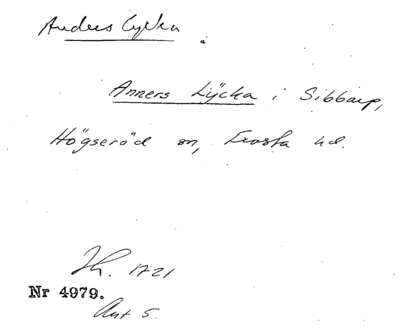 Anders Lycka
Anners Lÿcka i Sibbarp,
Högseröd sn, Frosta hd.
Th. 1721
Nr 4979.
Ant 5.